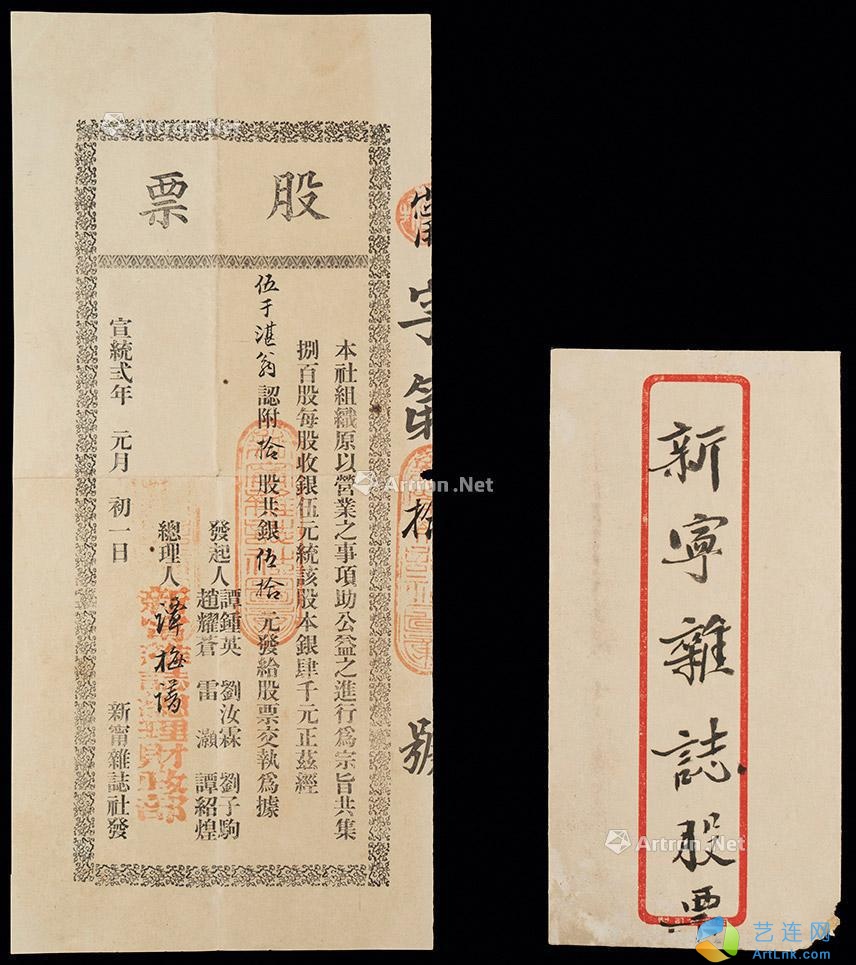 股票
本社組織原以營業之事項助公益之進行爲宗旨共集
捌百股每股收銀伍元統該股本銀肆千元正茲經
伍于湛翁認附拾股共銀伍拾元發給股票交執爲據
發起人 譚鍾英 劉汝霖 劉子駒
趙耀蒼 雷灝 譚紹煌
總理人 譚梅
宣統弍年 元月 初一日
新甯雜誌社發
字第
拾
號
新寧雜誌股票
Artron.Net
Artron.Net
Artron.Net
艺连网
ArtLnk.Com